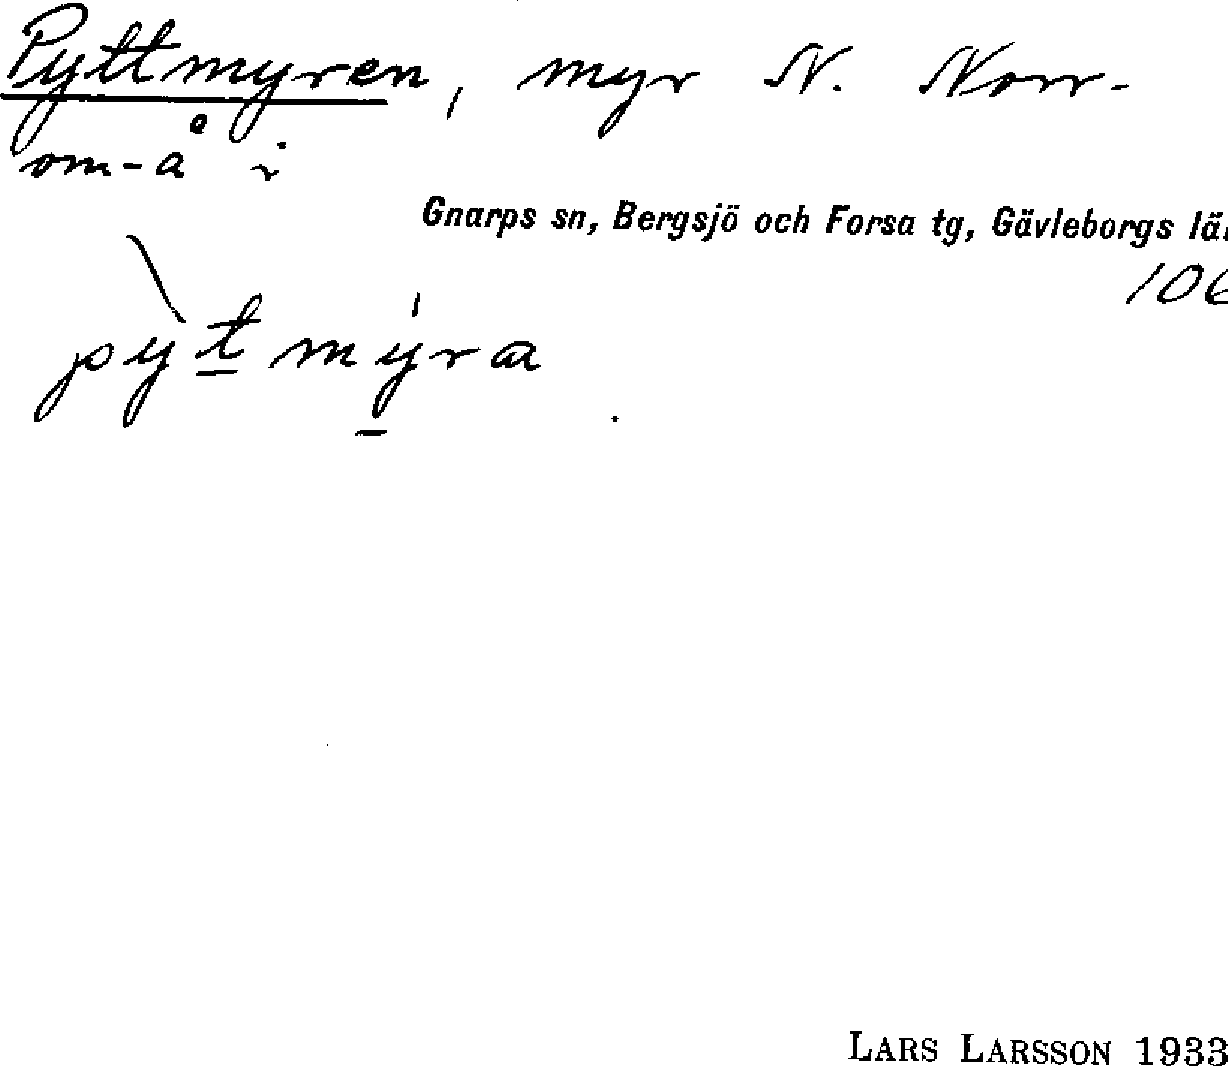 Pyttmyren, myr N. Norr-
om-å i
Gnarps sn, Bergsjö och Forsa tg, Gävleborgs lä
106
pỳt mýra
LARS LARSSON 1933